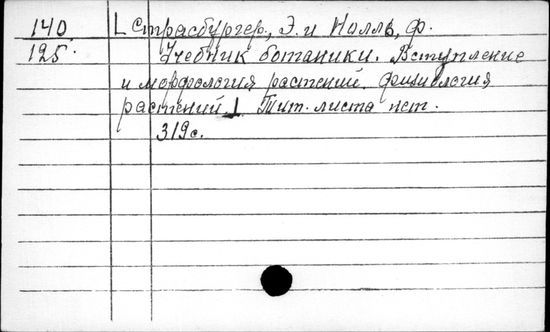 140 [Страсбургер, Э. и Нолль, Ф.
125. Учебник ботаники. Вступление
и морфология растений. Физиология
растений.] Тит. листа нет.
319с.